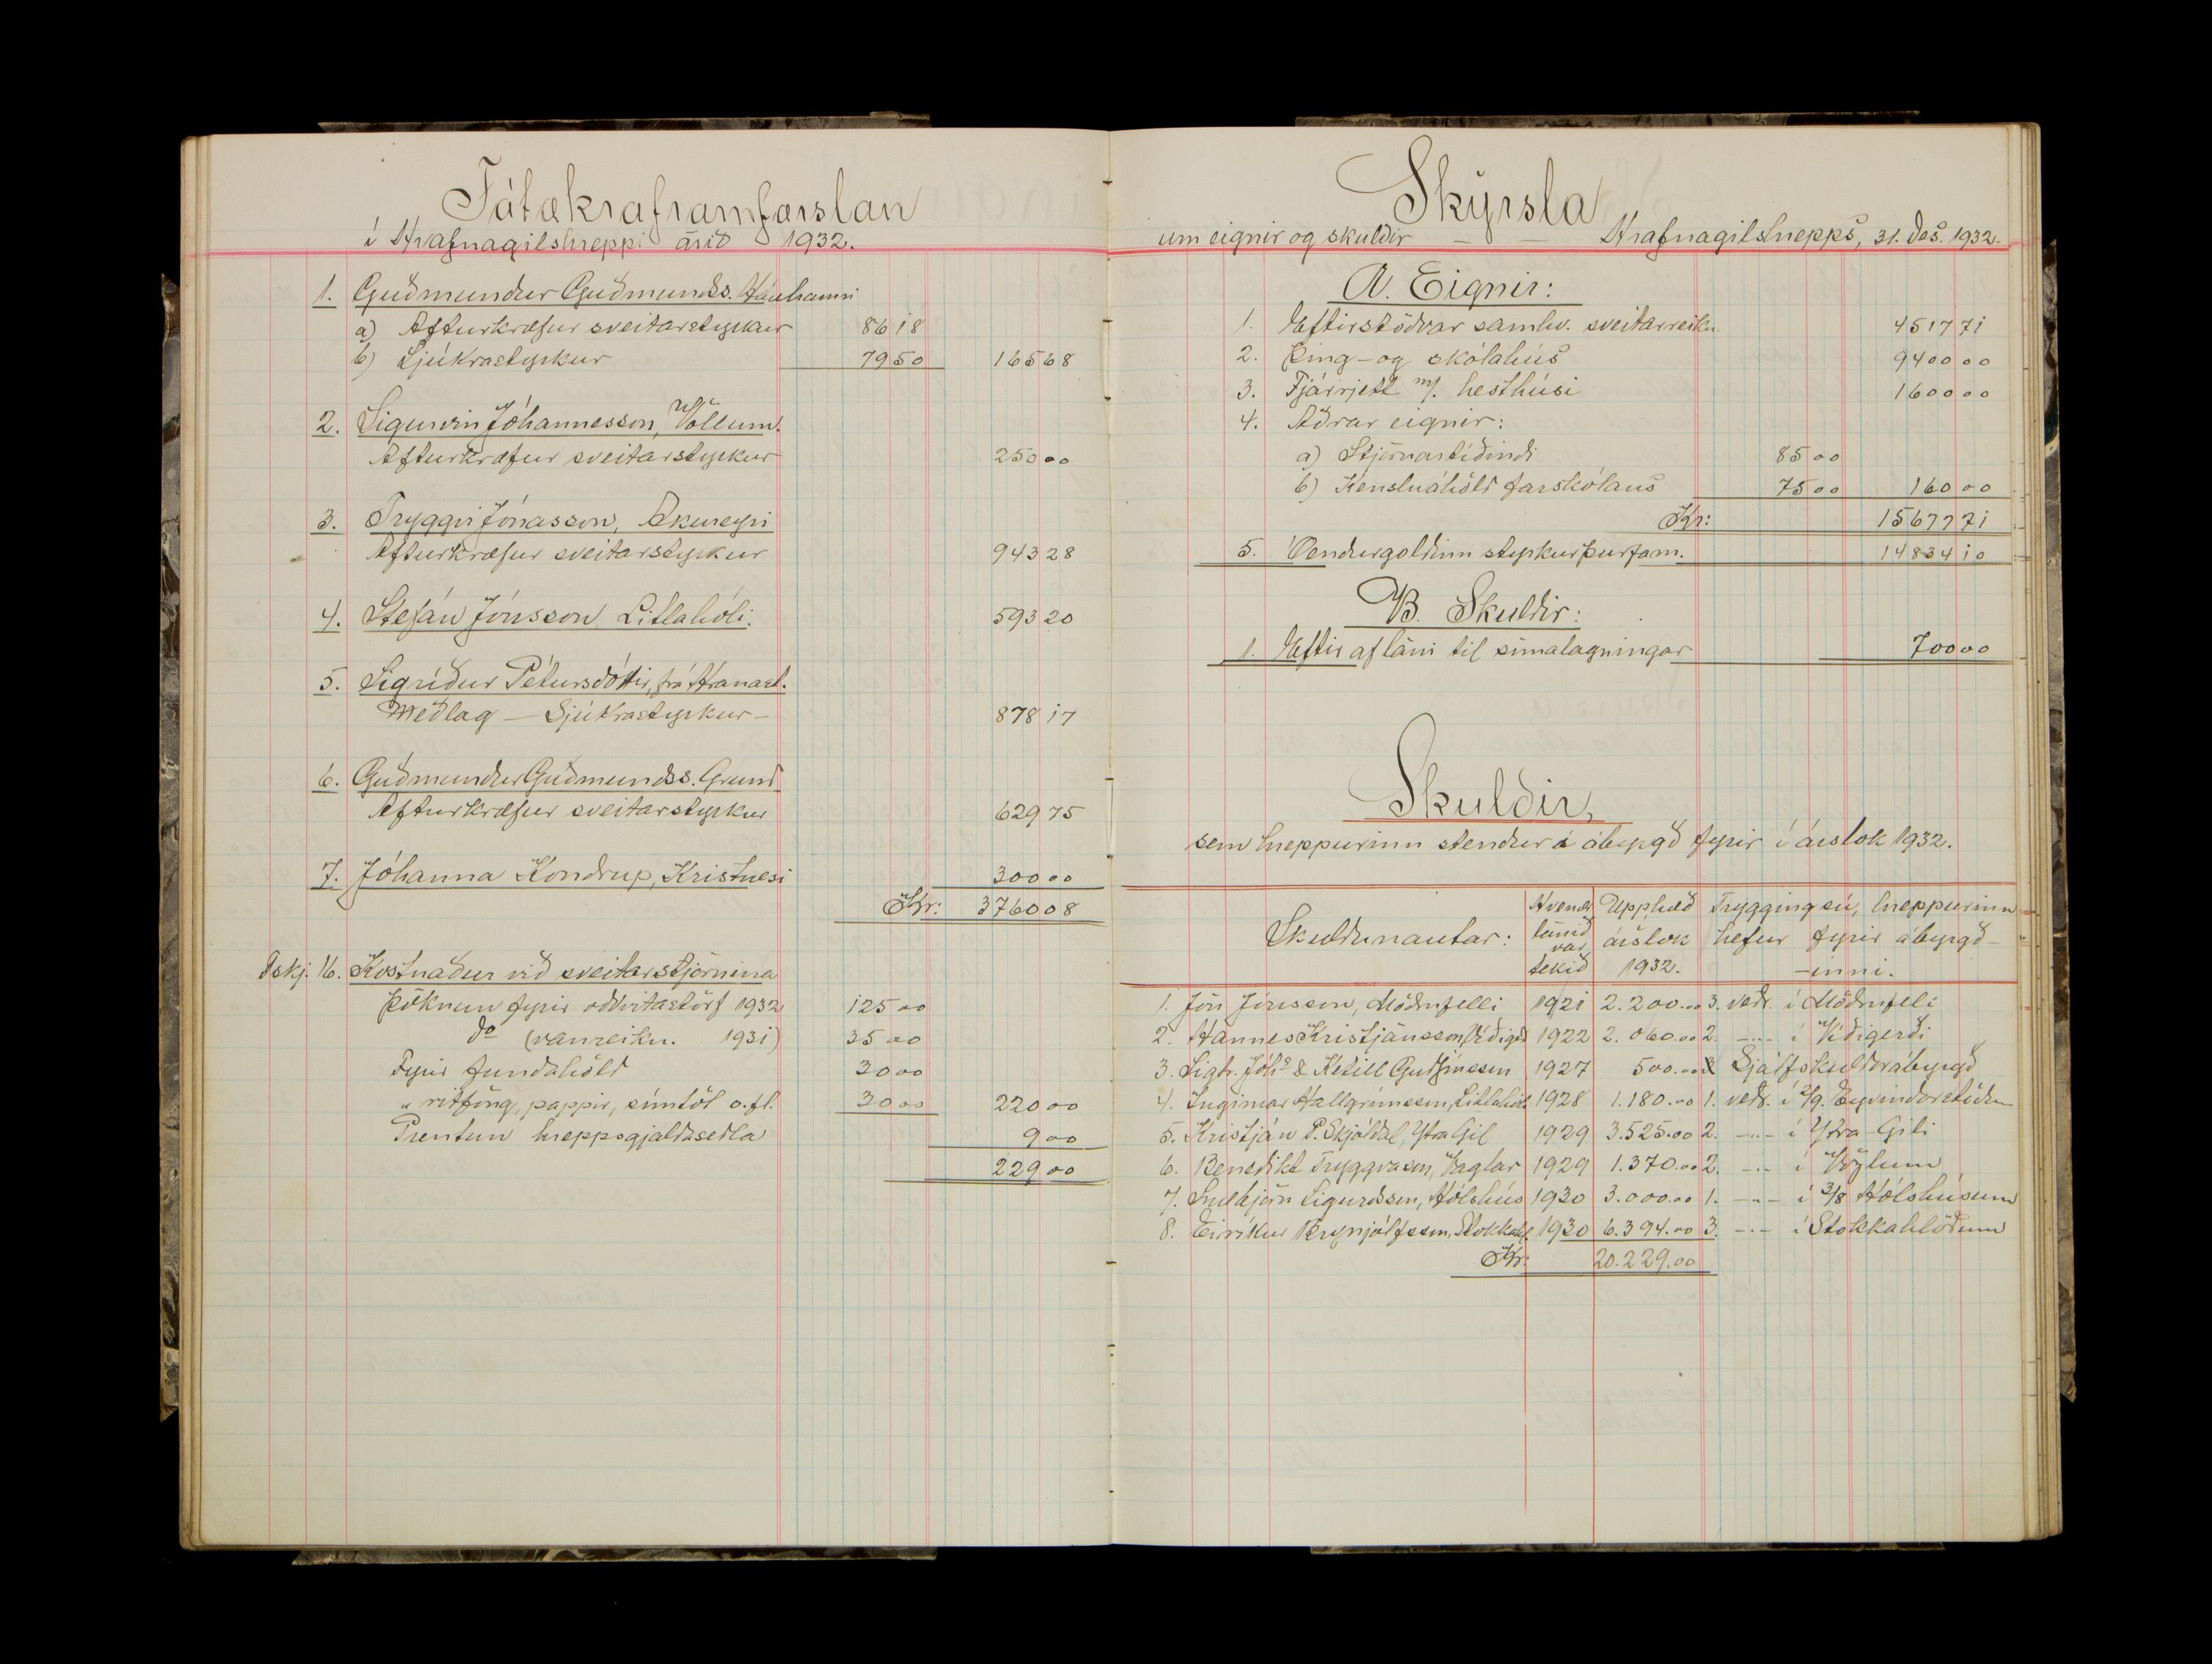 Fátækraframfærslan
í Hrafnagilshreppi árið 1932.
1. Guðmundur Guðmundss. Háuhammi
a) Afturkræfur sveitarstyrkur 86 18
b) Sjúkrastyrkur 79 50 165 68
2. Sigurvin Jóhannesson, Völlum.
Afturkræfur sveitarstyrkur 250 00
3. Tryggvi Jónasson, Akureyri
Afturkræfur sveitarstyrkur 943 28
4. Stefán Jónsson Litlahóli. 593 20
5. Sigríður Pétursdóttir, frá Hranast.
Meðlag – Sjúkrastyrkur – 878 17
6. Guðmundur Guðmundss. Grund
Afturkræfur sveitarstyrkur 629 75
7. Jóhanna Kondrup, Kristnesi 300 00
Kr: 3760 08
Fskj. 16. Kostnaður við sveitarstjórnina
Þóknun fyrir oddvitastörf 1932 125 00
do (vanreikn. 1931) 35 00
Fyrir fundahöld 30 00
" ritföng, pappír, símtöl o.fl. 30 00 220 00
Prentun hreppsgjaldseðla 9 00
229 00
Skýrsla
um eignir og skuldir – – Hrafnagilshrepps, 31. des. 1932.
A. Eignir:
1. Eftirstöðvar samkv. sveitarreikn. 4517 71
2. Þing- og skólahús 9400 00
3. Fjárrjett m/. hesthúsi 1600 00
4. Aðrar eignir:
a) Stjórnartíðindi 85 00
b) Kensluáhöld farskólans 75 00 160 00
Kr: 15677 71
5. Óendurgoldinn styrkur þurfam. 14834 10
B. Skuldir:
1. Eftir af láni til símalagningar 700 00
Skuldir,
sem hreppurinn stendur í ábyrgð fyrir í árslok 1932.
Skuldunautar: Hvenær lánið var tekið Upphæð árslok 1932. Trygging sú, hreppurinn hefur fyrir ábyrgð-inni.
1. Jón Jónsson, Möðrufelli 1921 2.200.00 3. veðr. í Möðrufelli
2. Hannes Kristjánsson, Víðigerði 1922 2.060.00 2. -"- í Víðigerði
3. Sigtr. Jóhs & Ketill Guðjónsson 1927 500.00 Sjálfskuldarábyrgð
4. Ingimar Hallgrímsson, Litlahóli 1928 1.180.00 1. veðr. í 2/9. Eyvindarstöðum
5. Kristján P. Skjóldal, Ytra Gil 1929 3.525.00 2. -"- í Ytra-Gili
6. Benedikt Tryggvason, Vaglar 1929 1.370.00 2. -"- í Vöglum
7. Snæbjörn Sigurðsson, Hólshús 1930 3.000.00 1. -"- í 3/8 Hólshúsum
8. Eiríkur Brynjólfsson, Stokkahl. 1930 6.394.00 3. -"- í Stokkahlöðum
Kr: 20.229.00